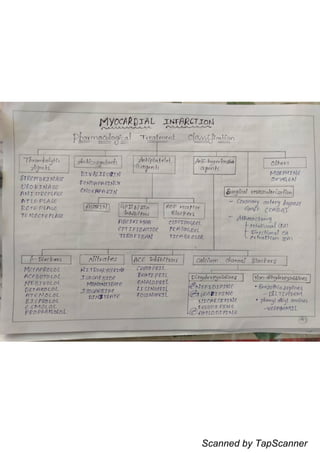 MYOCARDIAL INFARCTION
Pharmacological Treatment Classification
Thrombolytic agents
STREPTOKINASE
UROKINASE
ANISTREPLASE
ALTEPLASE
RETEPLASE
TENECTEPLASE
Anticoagulants
BIVALIRUDIN
FONDAPARINUX
ENOXAPARIN
Antiplatelet agents
ASPIRIN
GPIIb/IIIa Inhibitors
ABCIXIMAB
EPTIFIBATIDE
TIROFIBAN
ADP receptor Blockers
CLOPIDOGREL
PRASUGREL
TICAGRELOR
agents
Others
MORPHINE
OXYGEN
Surgical revascularization
- Coronary artery bypass
(CABG)
β-Blockers
METOPROLOL
ACEBUTOLOL
NEBIVOLOL
BETAXOLOL
ATENOLOL
BISOPROLOL
ESMOLOL
PROPRANOLOL
Nitrates
NITROGLYCERIN
ISOSORBIDE
MONONITRATE
ISOSORBIDE
DINITRATE
ACE Inhibitors
CAPTOPRIL
RAMIPRIL
ENALAPRIL
LISINOPRIL
FOSINOPRIL
Calcium channel Blockers
Dihydropyridines
NIFEDIPINE
NICARDIPINE
AMLODIPINE
Non dihydropyridines
• Benzothiazepines
- DILTIAZEM
• phenyl alkyl amines
- VERAPAMIL
Scanned by TapScanner